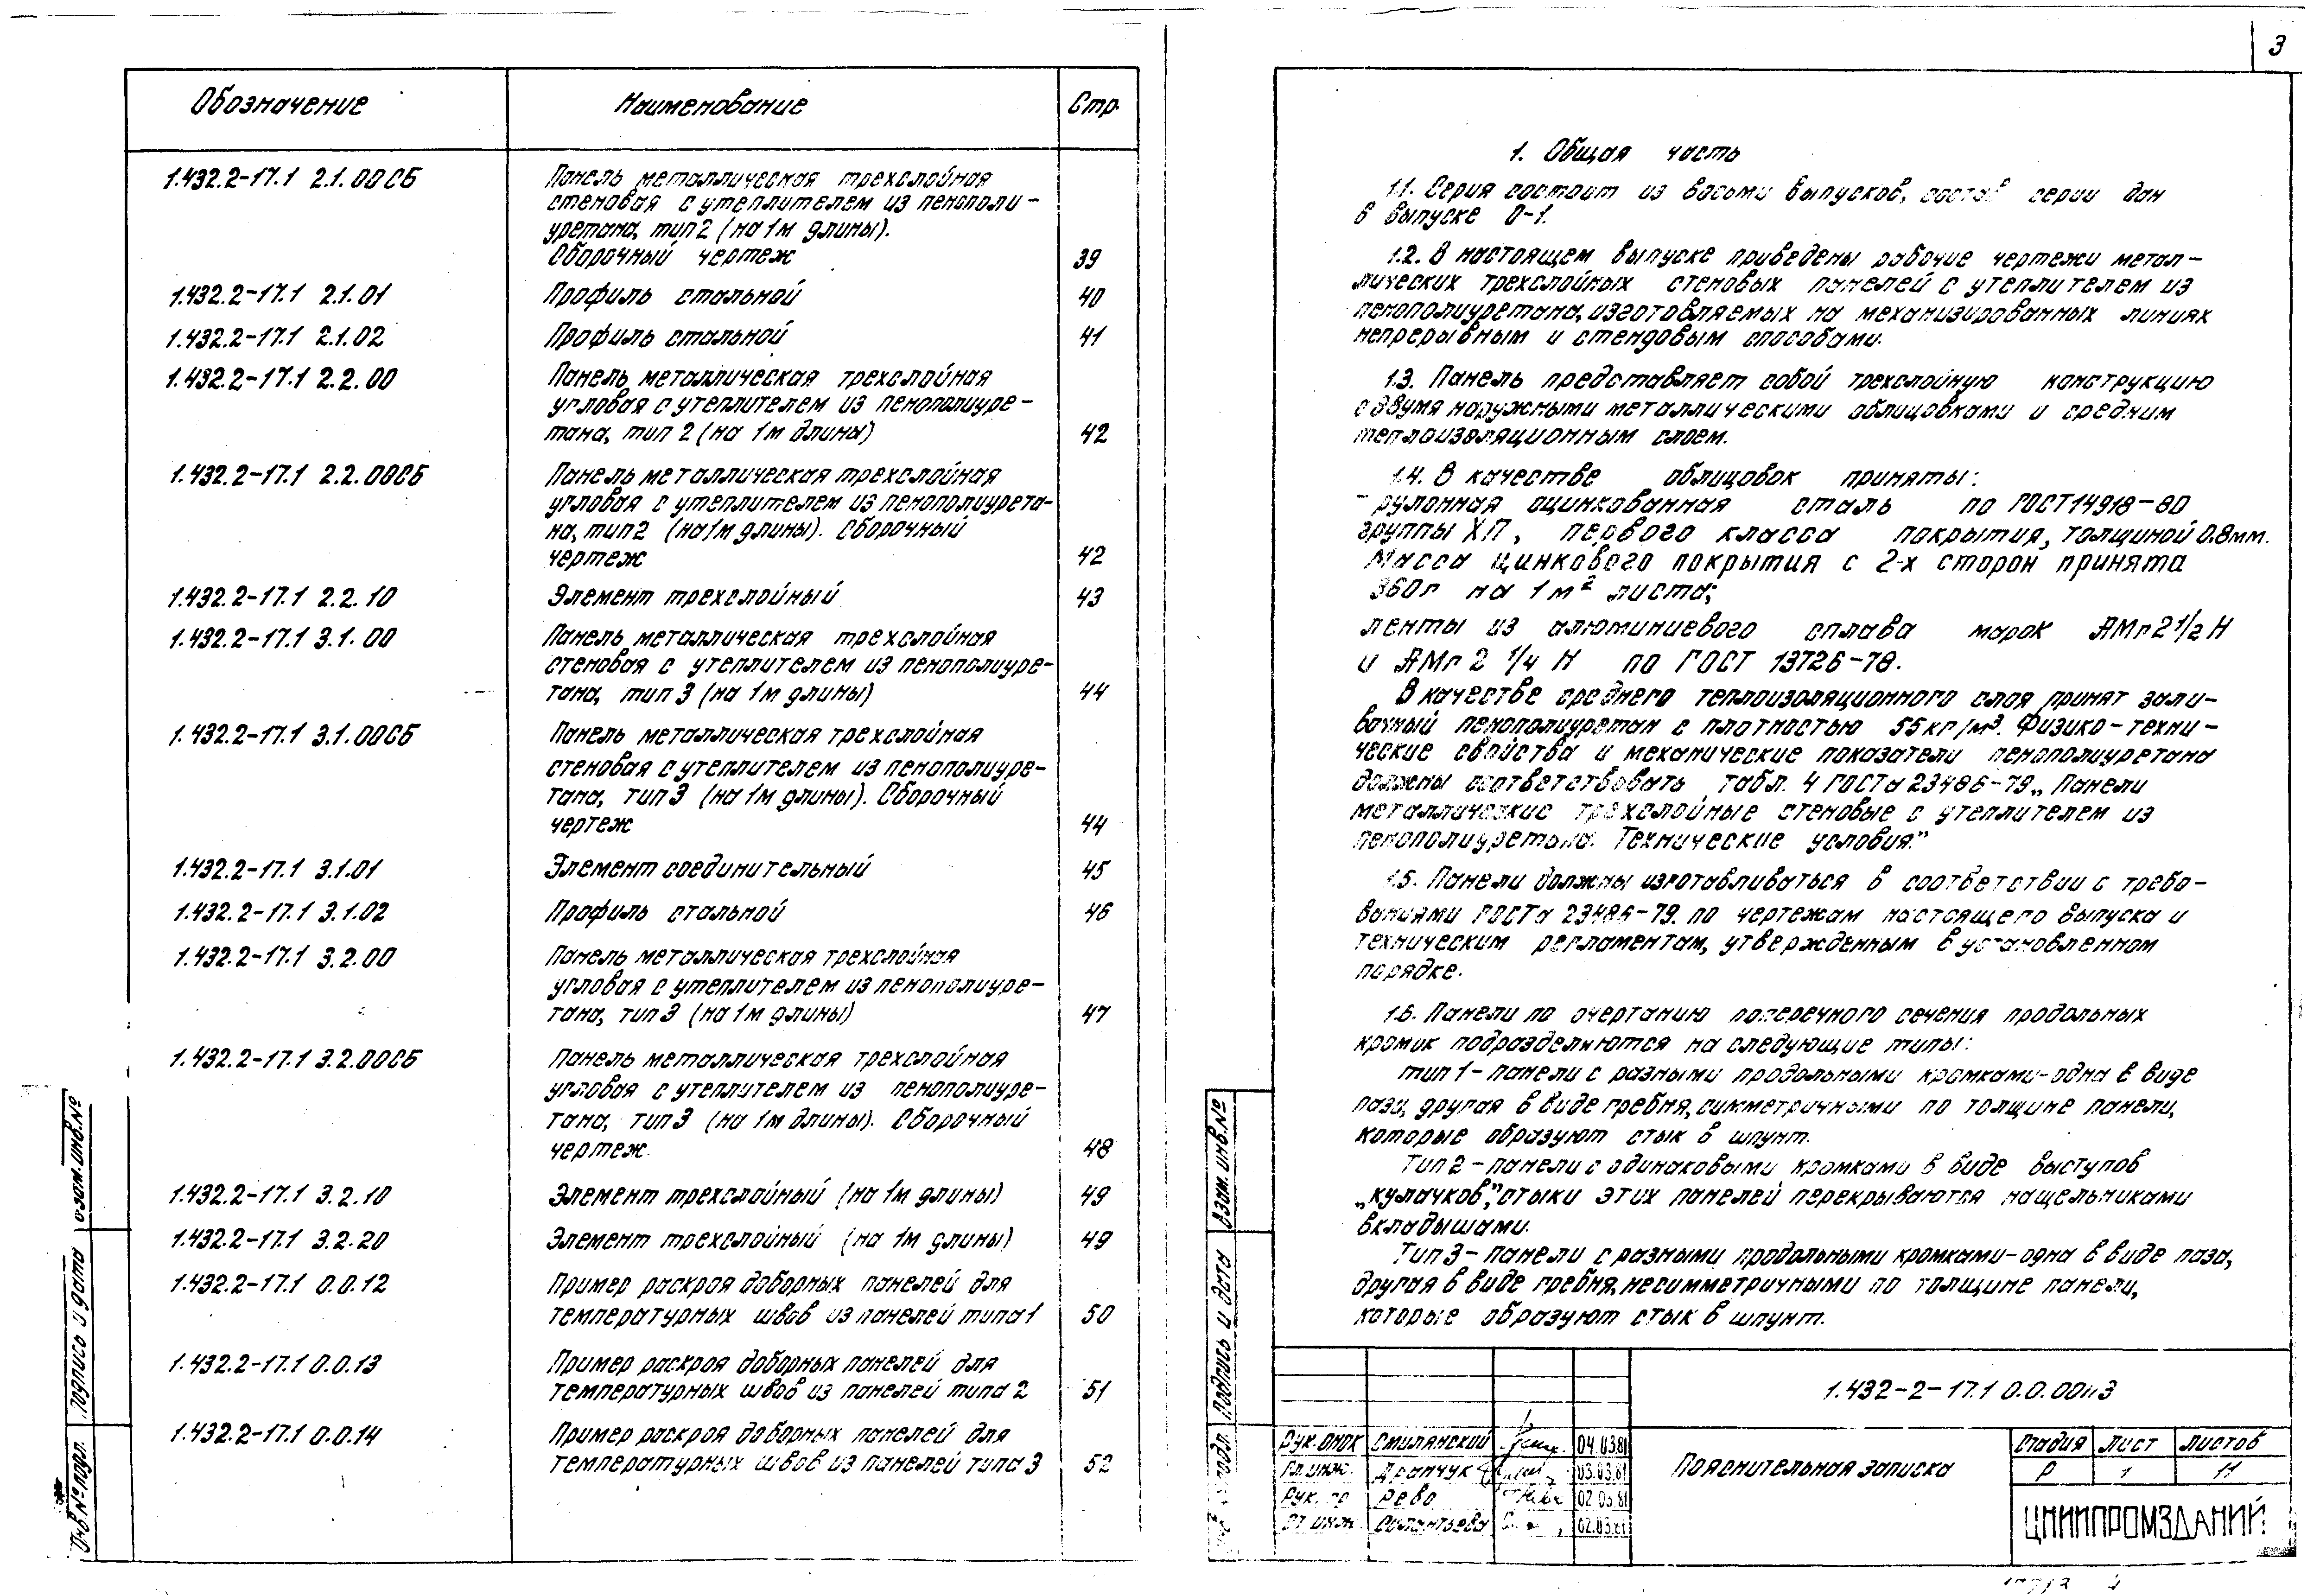 Обозначение Наименование Стр.
1.432.2-17.1 2.1.00СБ Панель металлическая трехслойная
стеновая с утеплителем из пенополи-
уретана, тип 2 (на 1м длины).
Сборочный чертеж 39
1.432.2-17.1 2.1.01 Профиль стальной 40
1.432.2-17.1 2.1.02 Профиль стальной 41
1.432.2-17.1 2.2.00 Панель металлическая трехслойная
угловая с утеплителем из пенополиуре-
тана, тип 2 (на 1м длины) 42
1.432.2-17.1 2.2.00СБ Панель металлическая трехслойная
угловая с утеплителем из пенополиурета-
на, тип 2 (на 1м длины). Сборочный
чертеж 42
1.432.2-17.1 2.2.10 Элемент трехслойный 43
1.432.2-17.1 3.1.00 Панель металлическая трехслойная
стеновая с утеплителем из пенополиуре-
тана, тип 3 (на 1м длины) 44
1.432.2-17.1 3.1.00СБ Панель металлическая трехслойная
стеновая с утеплителем из пенополиуре-
тана, тип 3 (на 1м длины). Сборочный
чертеж 44
1.432.2-17.1 3.1.01 Элемент соединительный 45
1.432.2-17.1 3.1.02 Профиль стальной 46
1.432.2-17.1 3.2.00 Панель металлическая трехслойная
угловая с утеплителем из пенополиуре-
тана, тип 3 (на 1м длины) 47
1.432.2-17.1 3.2.00СБ Панель металлическая трехслойная
угловая с утеплителем из пенополиуре-
тана, тип 3 (на 1м длины). Сборочный
чертеж. 48
1.432.2-17.1 3.2.10 Элемент трехслойный (на 1м длины) 49
1.432.2-17.1 3.2.20 Элемент трехслойный (на 1м длины) 49
1.432.2-17.1 0.0.12 Пример раскроя доборных панелей для
температурных швов из панелей типа 1 50
1.432.2-17.1 0.0.13 Пример раскроя доборных панелей для
температурных швов из панелей типа 2 51
1.432.2-17.1 0.0.14 Пример раскроя доборных панелей для
температурных швов из панелей типа 3 52
Взам. инв. №
Подпись и дата
Инв № подл.
3
1. Общая часть
1.1. Серия состоит из восьми выпусков, состав серии дан
в выпуске 0-1.
1.2. В настоящем выпуске приведены рабочие чертежи метал-
лических трехслойных стеновых панелей с утеплителем из
пенополиуретана, изготовляемых на механизированных линиях
непрерывным и стендовым способами.
1.3. Панель представляет собой трехслойную конструкцию
с двумя наружными металлическими облицовками и средним
теплоизоляционным слоем.
1.4. В качестве облицовок приняты:
- рулонная оцинкованная сталь по ГОСТ 14918-80
группы ХП, первого класса покрытия, толщиной 0.8мм.
Масса цинкового покрытия с 2-х сторон принята
360г на 1м² листа;
ленты из алюминиевого сплава марок АМг2 1/2 Н
и АМг 2 1/4 Н по ГОСТ 13726-78.
В качестве среднего теплоизоляционного слоя принят зали-
вочный пенополиуретан с плотностью 55 кг/м³. Физико-техни-
ческие свойства и механические показатели пенополиуретана
должны соответствовать табл. 4 ГОСТа 23486-79 „Панели
металлические трехслойные стеновые с утеплителем из
пенополиуретана. Технические условия."
1.5. Панели должны изготавливаться в соответствии с требо-
ваниями ГОСТа 23486-79. по чертежам настоящего выпуска и
техническим регламентам, утвержденным в установленном
порядке.
1.6. Панели по очертанию поперечного сечения продольных
кромок подразделяются на следующие типы:
тип 1 - панели с разными продольными кромками - одна в виде
паза, другая в виде гребня, симметричными по толщине панели,
которые образуют стык в шпунт.
Тип 2 - панели с одинаковыми кромками в виде выступов
„кулачков", стыки этих панелей перекрываются нащельниками
вкладышами.
Тип 3 - панели с разными продольными кромками - одна в виде паза,
другая в виде гребня, несимметричными по толщине панели,
которые образуют стык в шпунт.
Взам. инв. №
Подпись и дата
подл.
1.432-2-17.1 0.0.00ПЗ
Рук. ОНОК Смилянский 04.03.81
Гл. инж. Драпчук 03.03.81
Рук. гр Рево 02.03.81
Ст. инж. 02.03.81
Пояснительная записка
Стадия Лист Листов
Р 1 11
ЦНИИПРОМЗДАНИЙ